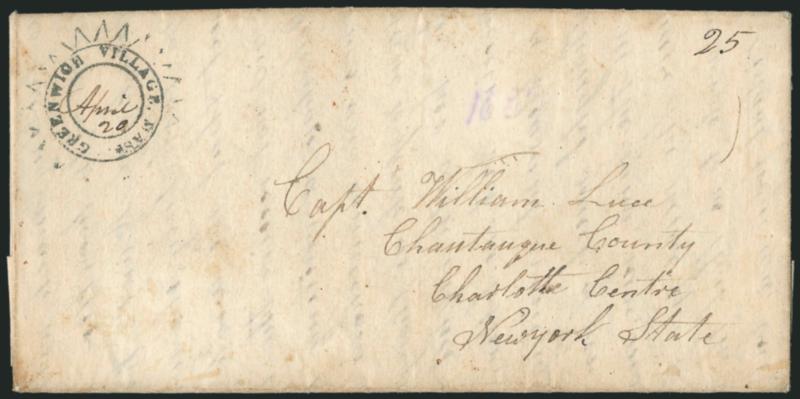 GREENWICH VILLAGE, MASS.
April
20
25
Capt. William Luce
Chautauque County
Charlotte Centre
Newyork State